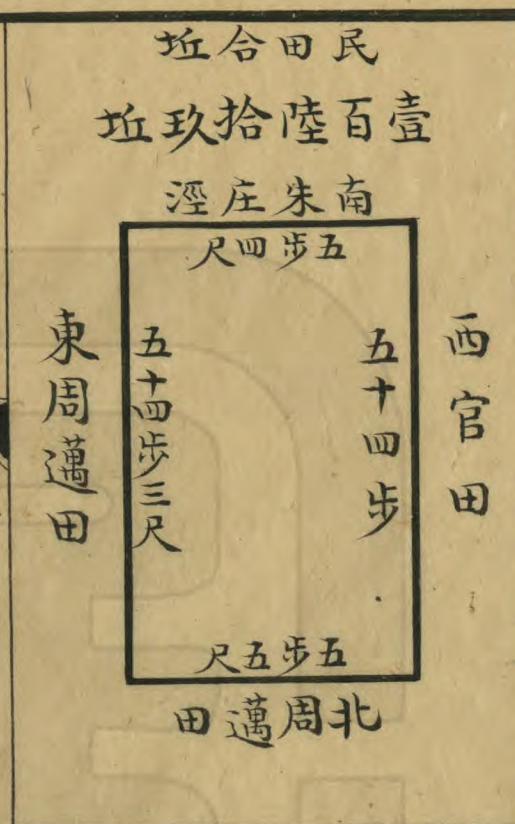 民田合坵
壹百陸拾玖坵
南朱庄涇
五步四尺
西官田
五十四步
五十四步三尺
東周邁田
五步五尺
北周邁田